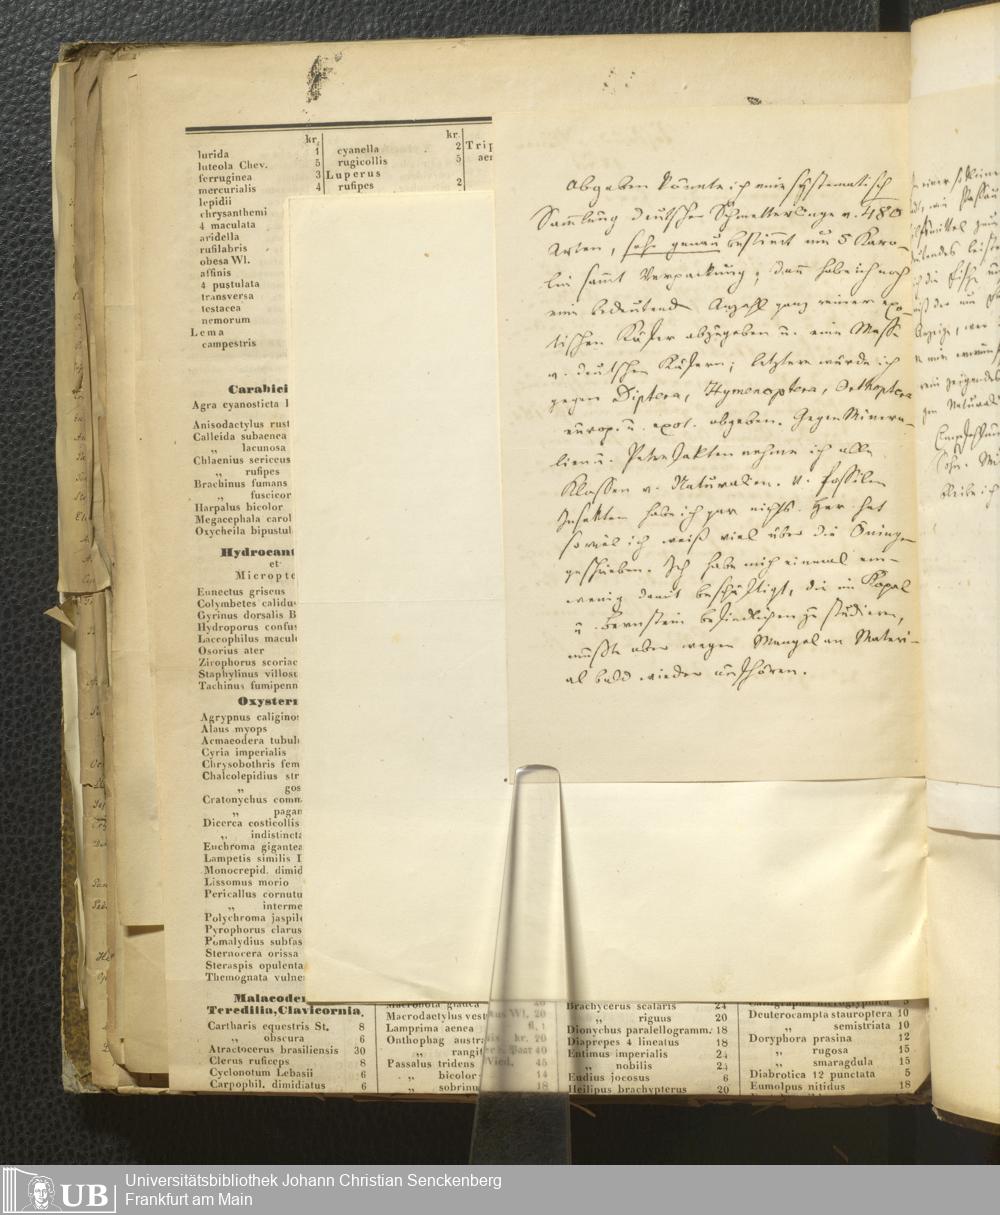 kr.
lurida 1
luteola Chev. 5
ferruginea 3
mercurialis 4
lepidii
chrysanthemi
4 maculata
aridella
rufilabris
obesa Wl.
affinis
4 pustulata
transversa
testacea
nemorum
Lema
campestris
kr.
cyanella 2
rugicollis 5
Luperus
rufipes 2
Trip
aen
Carabici
Agra cyanosticta
Anisodactylus rust
Calleida subaenea
„ lacunosa
Chlaenius sericeus
„ rufipes
Brachinus fumans
„ fuscicor
Harpalus bicolor
Megacephala carol
Oxycheila bipustul
Hydrocant
et
Micropte
Eunectus griseus
Colymbetes calidus
Gyrinus dorsalis B
Hydroporus confus
Laccophilus macul
Osorius ater
Zirophorus scoriac
Staphylinus villosu
Tachinus fumipenn
Oxystern
Agrypnus caligino
Alaus myops
Acmaeodera tubul
Cyria imperialis
Chrysobothris fem
Chalcolepidius str
„ gos
Cratonychus comm
„ pagan
Dicerca costicollis
„ indistincta
Euchroma gigantea
Lampetis similis
Monocrepid. dimid
Lissomus morio
Pericallus cornutu
„ interme
Polychroma jaspide
Pyrophorus clarus
Pomalydius subfas
Sternocera orissa
Steraspis opulenta
Themognata vulne
Malacoder
Teredilia, Clavicornia.
Cartharis equestris St. 8
„ obscura 6
Atractocerus brasiliensis 30
Clerus ruficeps 8
Cyclonotum Lebasii 6
Carpophil. dimidiatus 6
Macronota glauca 20
Macrodactylus vest 20
Lamprima aenea
Onthophag austra 20
„ rangif 40
Passalus tridens 45
„ bicolor 14
„ sobrinu 18
Brachycerus scalaris 24
„ riguus 20
Dionychus paralellogramm. 18
Diaprepes 4 lineatus 18
Entimus imperialis 24
„ nobilis 24
Eudius jocosus 6
Heilipus brachypterus 20
Calligrapha hieroglyphica 5
Deuterocampta stauroptera 10
„ semistriata 10
Doryphora prasina 12
„ rugosa 15
„ smaragdula 15
Diabrotica 12 punctata 5
Eumolpus nitidus 18
Abgeben könnte ich eine systematisch
Sammlung deutscher Schmetterlinge v. 480
Arten, sehr genau bestimmt um 5 Karo-
lin sammt Verpackung; dann habe ich noch
eine bedeutende Anzahl ganz reiner exo-
tischer Käfer abzugeben u. eine Masse
v. deutschen Käfern; letztere würde ich
gegen Diptera, Hymenoptera, Orthoptera
europ. u. exot. abgeben. Gegen Minera-
lien u. Petrefakten nehme ich alle
Klassen v. Naturalien. V. fossilen
Insekten habe ich gar nichts. Heer hat
soviel ich weiß viel über die Öninger
geschrieben. Ich habe mich einmal ein-
wenig damit beschäftigt, die im Kopal
u. Bernstein befindlichen zu studieren,
mußte aber wegen Mangel an Materi-
al bald wieder aufhören.
Universitätsbibliothek Johann Christian Senckenberg
Frankfurt am Main
UB